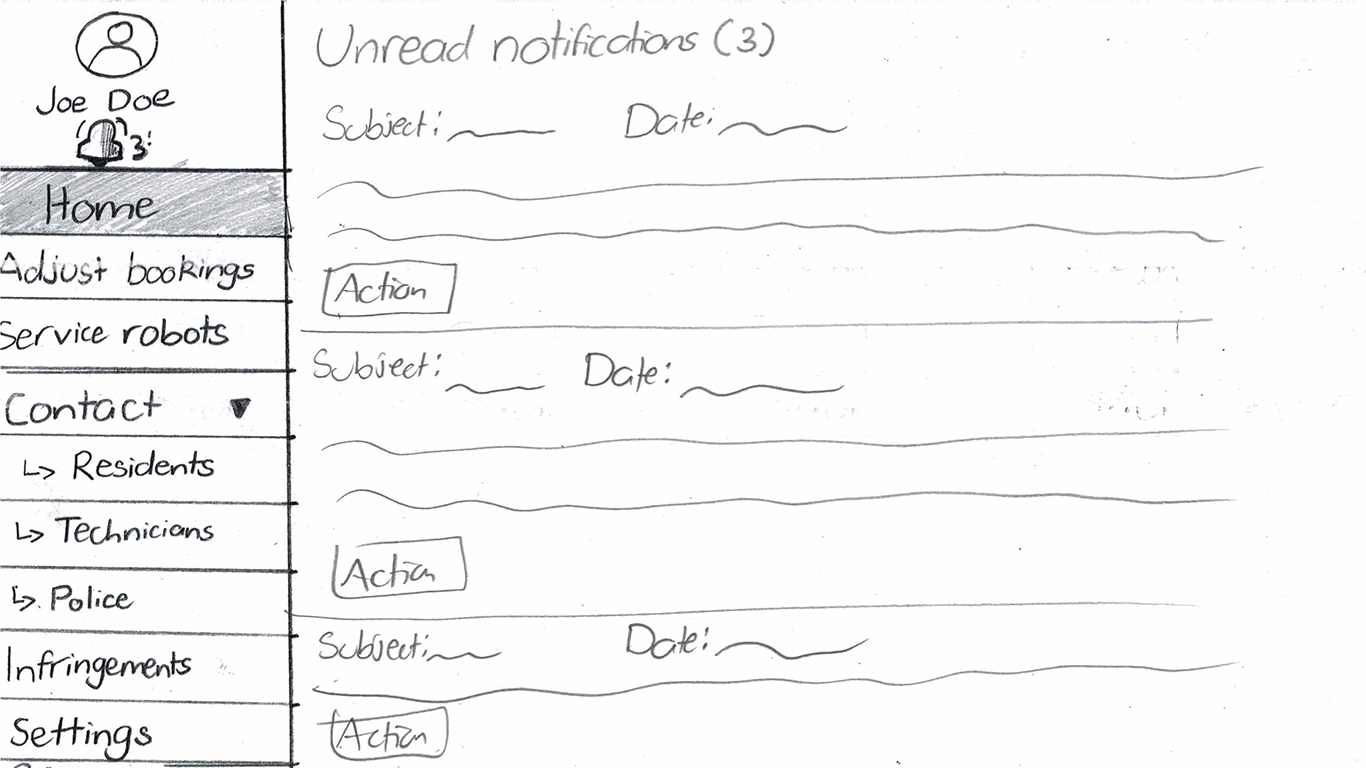 Joe Doe
3
Home
Adjust bookings
Service robots
Contact
Residents
Technicians
Police
Infringements
Settings
Unread notifications (3)
Subject: Date:
Action
Subject: Date:
Action
Subject: Date:
Action